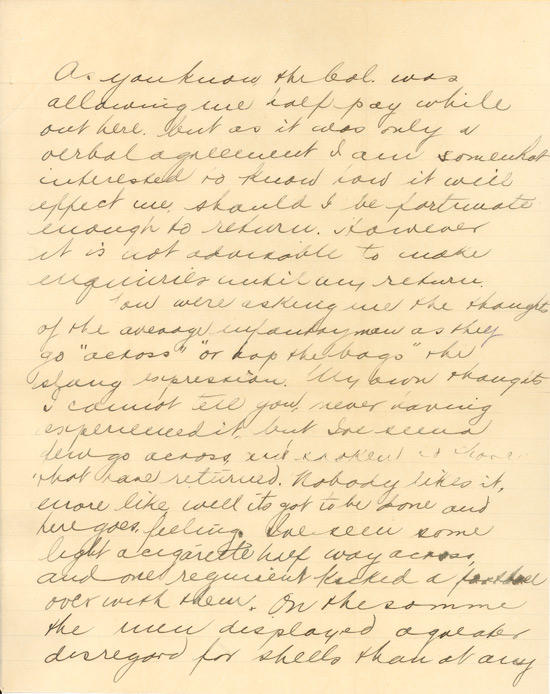 As you know the Col. was
allowing me half pay while
out here. but as it was only a
verbal agreement I am somewhat
interested to know how it will
effect me, should I be fortunate
enough to return. However
it is not advisable to make
enquiries until my return.
You were asking me the thoughts
of the average infantryman as they
go "across" "or hop the bags" the
slang expression. My own thoughts
I cannot tell you, never having
experienced it, but I've seen a
few go across, and spoken to those
that have returned. Nobody likes it,
more like well its got to be done and
here goes, feeling. I've seen some
light a cigarette half way across,
and one regiment kicked a football
over with them. On the somme
the men displayed a greater
disregard for shells than at any